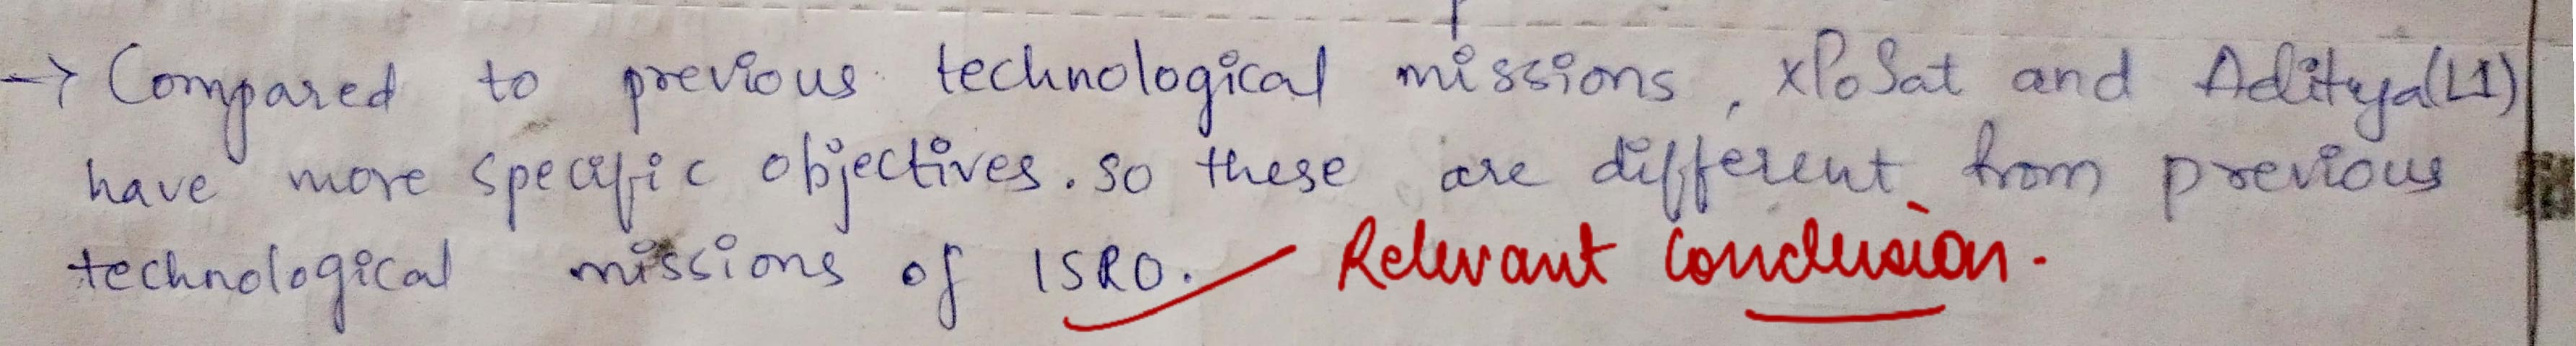 → Compared to previous technological missions, xPoSat and Aditya(L1)
have more specific objectives. so these are different from previous
technological missions of ISRO. Relevant Conclusion.